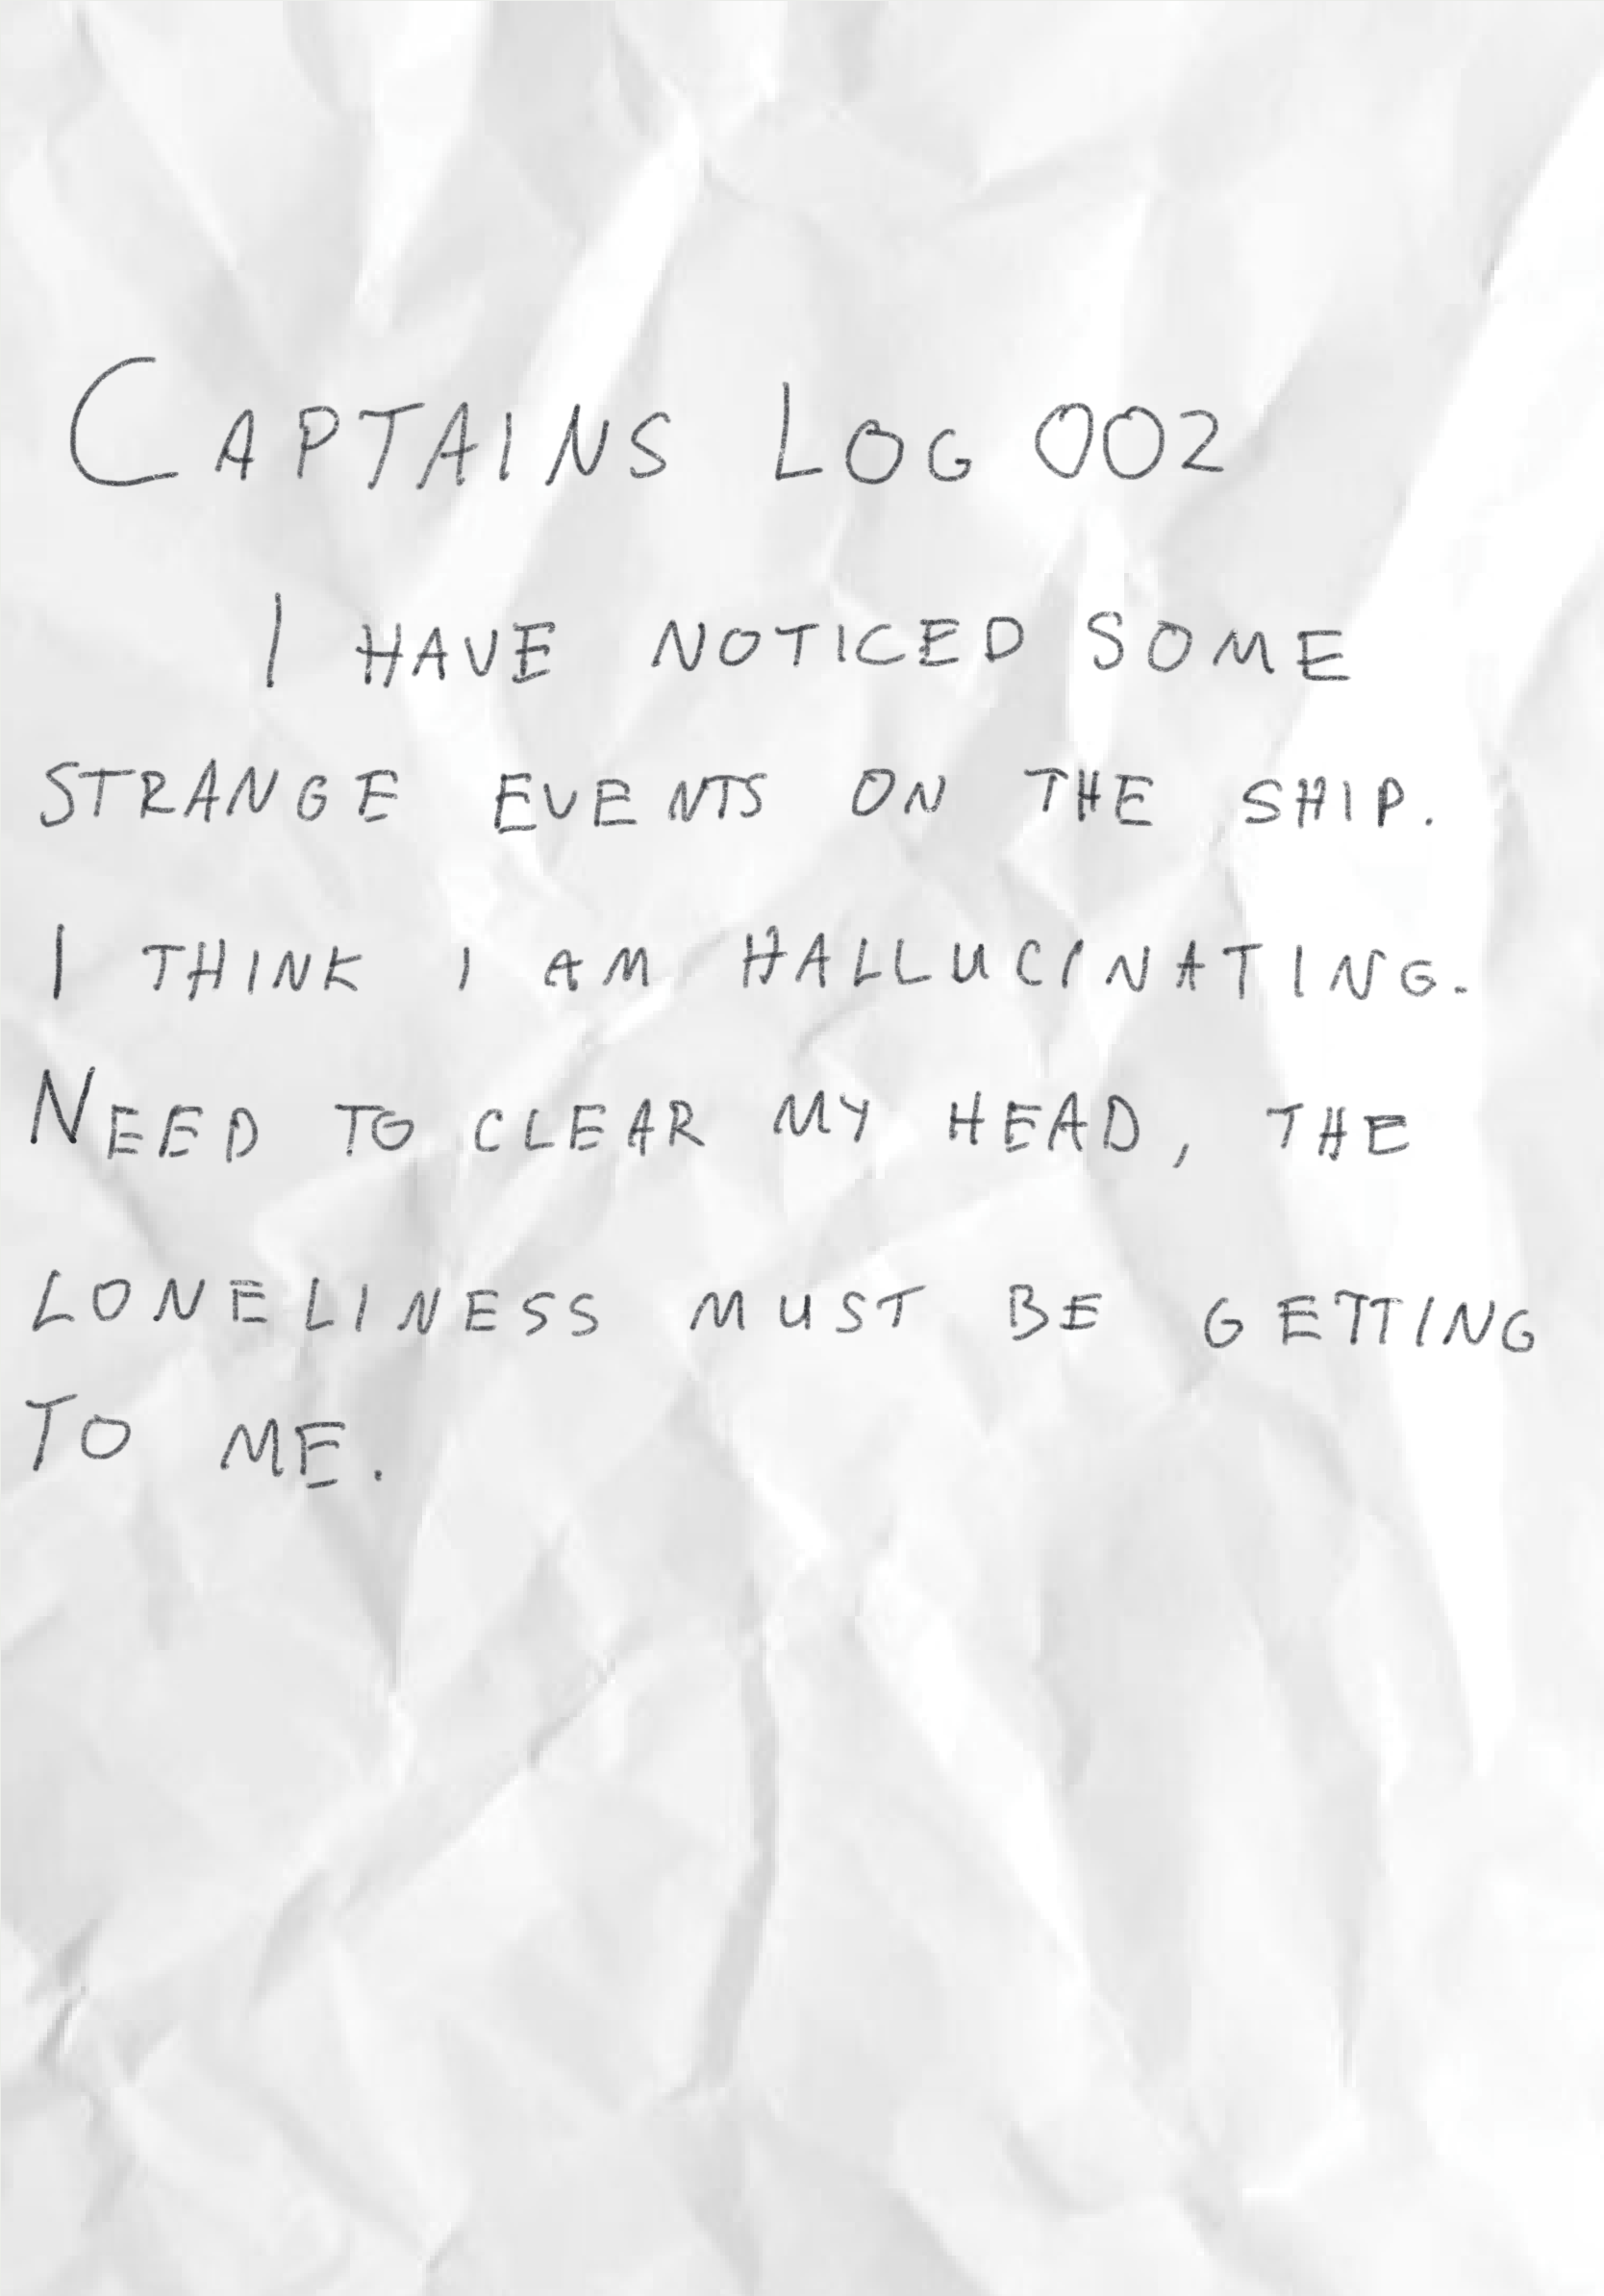 CAPTAINS LOG 002
I HAVE NOTICED SOME
STRANGE EVENTS ON THE SHIP.
I THINK I AM HALLUCINATING.
NEED TO CLEAR MY HEAD, THE
LONELINESS MUST BE GETTING
TO ME.